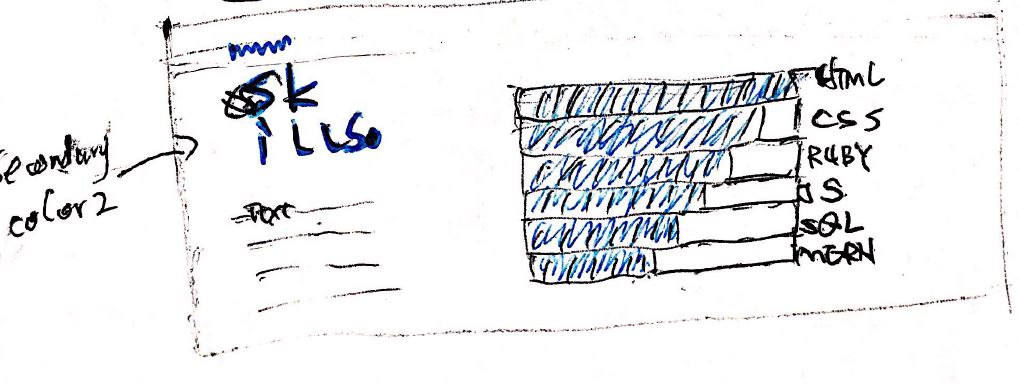 Secondary
color 2
Sk
iLLS.
Text
HTML
CSS
RUBY
JS
SQL
MERN